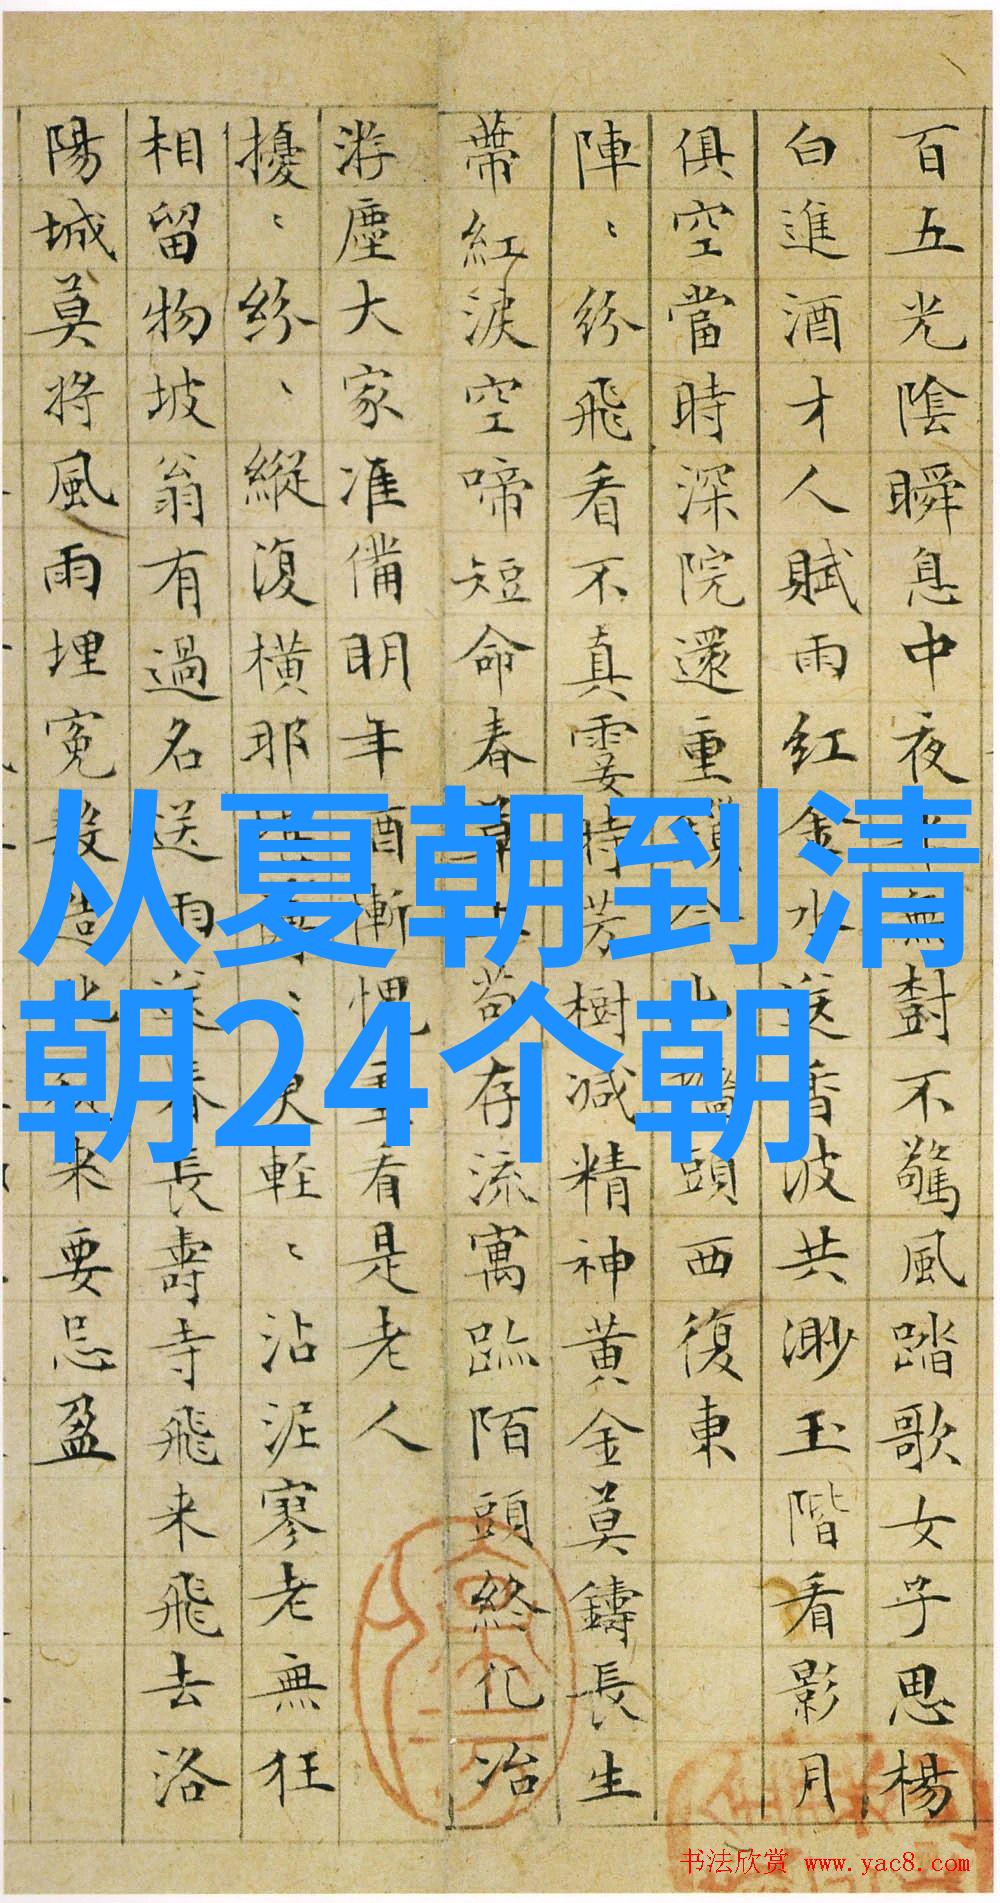 从夏朝到清
朝24个朝
百五光陰瞬息中夜無對不驚風踏歌女子思楊
白進酒才人賦雨紅金水淚香波共渺玉階看影月
俱空當時深院還重鎖今頭西復東
陣〻紛飛看不真霎時芳樹減精神黃金莫鑄長生
蒂紅淚空啼短命春草茍存流寓跡陌頭終化冶
游塵大家准備明年酒慚愧重看是老人
擾〻紛〻縱復橫那〻更輕〻沾泥寥老無狂
相留物坡翁有過名送雨送春長壽寺飛来飛去洛
陽城莫將風雨埋冤殺造化來要忌盈
书法欣赏 www.yac8.com